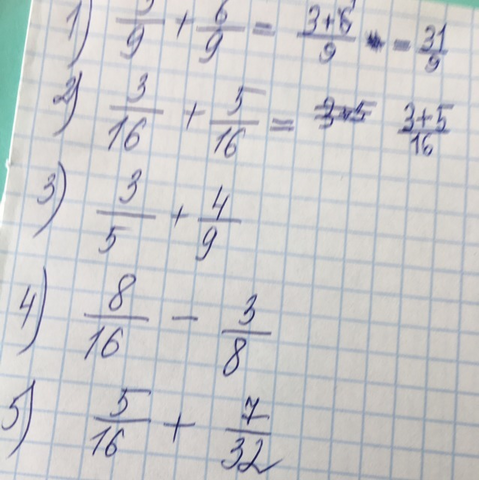 1) 3/9 + 6/9 = 3+6/9 = 31/9
2) 3/16 + 5/16 = 3+5/16
3) 3/5 + 4/9
4) 8/16 - 3/8
5) 5/16 + 7/32